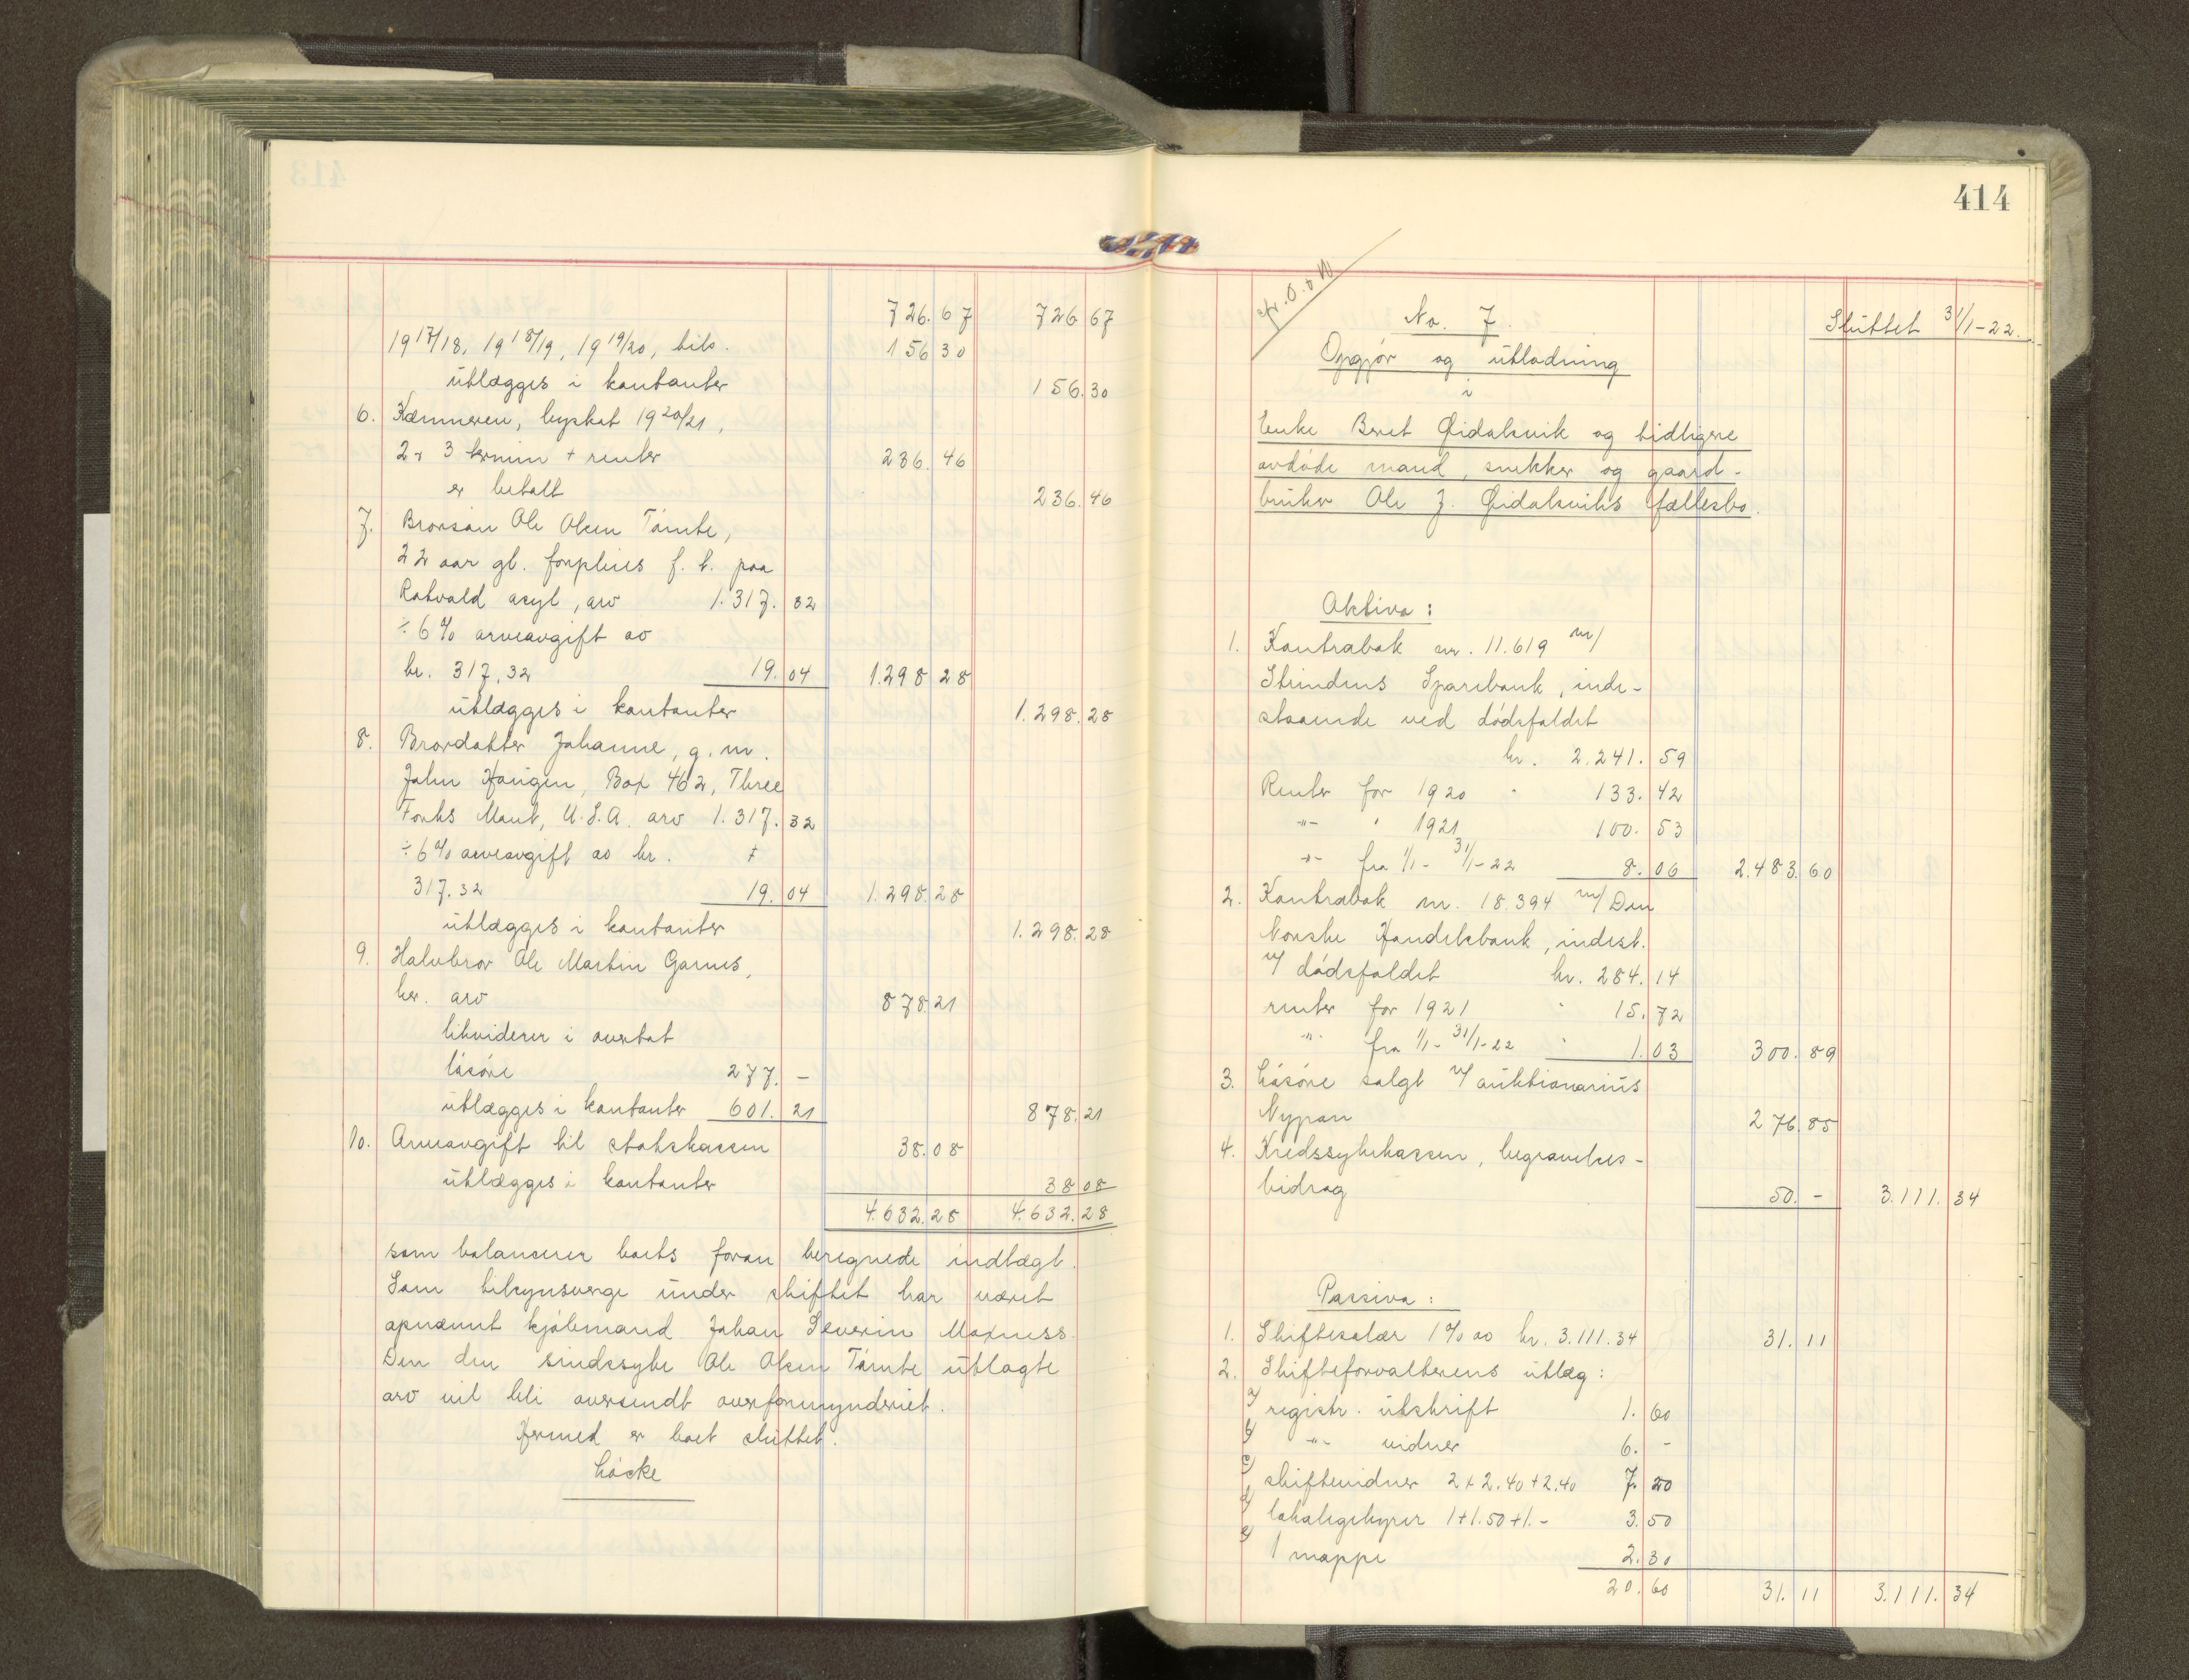 726.67 726 67
19 17/18, 19 18/19, 19 19/20, tils. 156 30
utlægges i kontanter 156.30
6. Kæmneren, byskat 19 20/21,
2 & 3 termin + renter 236.46
er betalt 236.46
7. Brorsøn Ole Olsen Tømte,
22 aar gl. forpleies f. t. paa
Rotvold asyl, arv 1.317.32
÷ 6% arveavgift av
kr. 317.32 19.04 1.298 28
utlægges i kontanter 1.298.28
8. Brordatter Johanne, g. m.
John Haugen, Box 462, Three
Forks Mont, U.S.A. arv 1.317.32
÷ 6% arveavgift av kr.
317.32 19.04 1.298.28
utlægges i kontanter 1.298.28
9. Halvbror Ole Martin Garnes,
her. arv 878.21
likviderer i overtat
løsøre 277. -
utlægges i kontanter 601.21 878.21
10. Arveavgift til statskassen 38.08
utlægges i kontanter 38 08
4.632.28 4.632.28
som balancerer boets foran beregnede indtægt.
Som tilsynsverge under skiftet har været
opnævnt kjølemand Johan Severin Moxness.
Den den sindssyke Ole Olsen Tømte utlagte
arv vil bli oversendt overformynderiet.
Hermed er boet sluttet.
Løcke
414
No. 7.
Sluttet 31/1-22.
Opgjør og utlodning
i
Enke Beret Øidalsvik og tidligere
avdøde mand, snekker og gaard-
bruker Ole J. Øidalsviks fællesbo.
Aktiva:
1. Kontrabok nr. 11.619 m/
Strindens Sparebank, inde-
staaende ved dødsfaldet
kr. 2.241.59
Renter for 1920 " 133.42
-"- " 1921 100.53
-"- fra 1/1 - 31/1-22 8.06 2.483.60
2. Kontrabok nr. 18.394 m/ Den
Norske Handelsbank, indest.
v/ dødsfaldet kr. 284.14
renter for 1921 " 15.72
-"- fra 1/1 - 31/1-22 " 1.03 300.89
3. Løsøre solgt v/ auktionarius
Nypan 276.85
4. Kredssykekassen, begravelses-
bidrag 50. - 3.111.34
Passiva:
1. Skiftesalær 1% av kr. 3.111.34 31.11
2. Skifteforvalterens utlæg:
a/ registr. utskrift 1.60
b/ -"- vidner 6. -
c/ skiftevidner 2+2.40+2.40 7.20
d/ lokalgebyrer 1+1.50+1.- 3.50
e/ 1 mappe 2.30
20.60 31.11 3.111.34